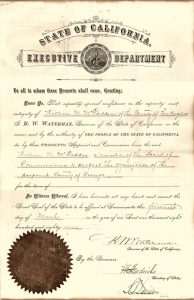 STATE OF CALIFORNIA.
EXECUTIVE DEPARTMENT
To all to whom these Presents shall come, Greeting:
Know Ye, That reposing special confidence in the capacity and
integrity of William H. McFadden of the County of Los Angeles
I, R. W. WATERMAN, Governor of the State of California in the
name and by the authority of THE PEOPLE OF THE STATE OF CALIFORNIA
do, by these PRESENTS, Appoint and Commission him the said
William McFadden a member of the Board of
Commissioners to perfect the organization of the
proposed County of Orange
for the term of
In Witness Whereof, I have hereunto set my hand and caused the
Great Seal of the State to be affixed at Sacramento this
day of March in the year of our Lord one thousand eight
hundred and eighty nine
R. W. Waterman
By the Governor
Governor
Secretary of State